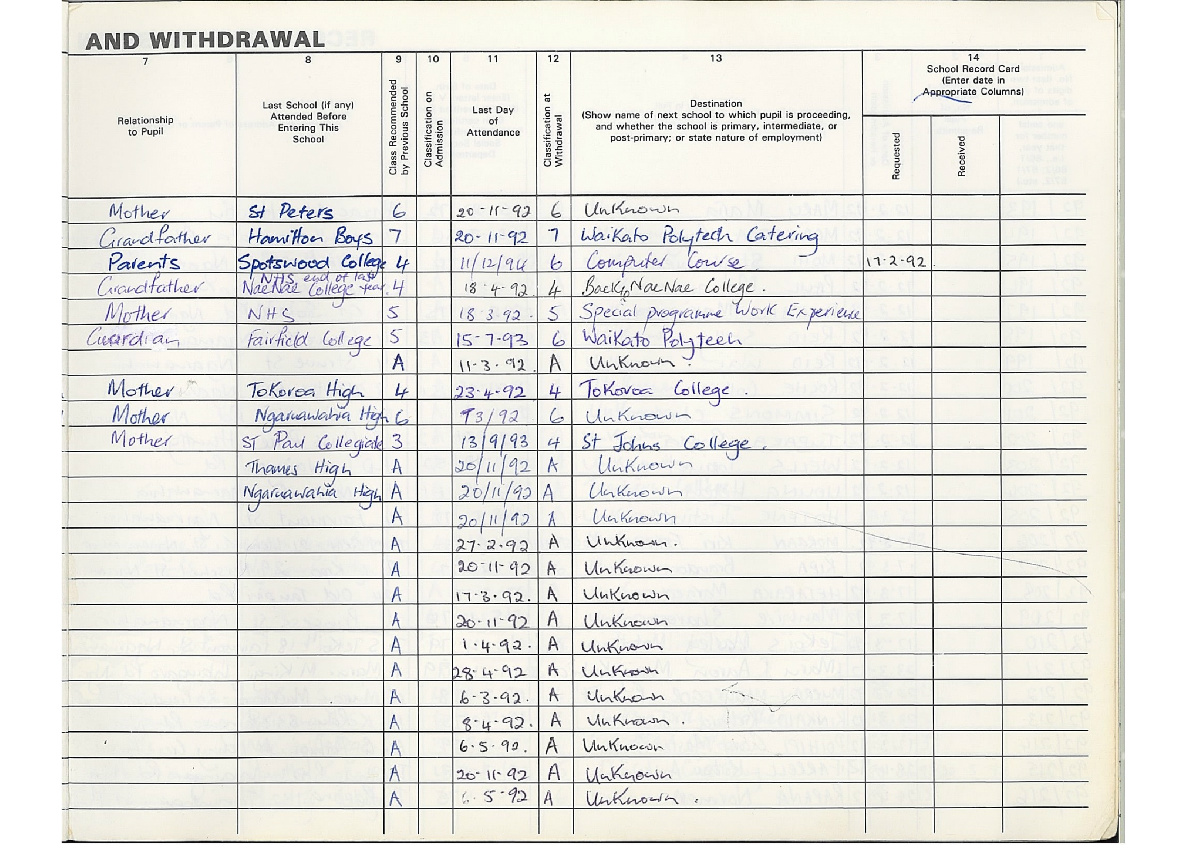 AND WITHDRAWAL
7 8 9 10 11 12 13 14
Relationship to Pupil
Last School (if any) Attended Before Entering This School
Class Recommended by Previous School
Classification on Admission
Last Day of Attendance
Classification at Withdrawal
Destination
(Show name of next school to which pupil is proceeding, and whether the school is primary, intermediate, or post-primary; or state nature of employment)
School Record Card
(Enter date in Appropriate Columns)
Requested
Received
Mother St Peters 6 20-11-92 6 Unknown
Grandfather Hamilton Boys 7 20-11-92 7 Waikato Polytech Catering
Parents Spotswood College 4 11/12/94 6 Computer Course 17-2-92
NHS end of last year.
Grandfather NaeNae College 4 18-4-92 4 Back to NaeNae College.
Mother NHS 5 18-3-92 5 Special programme Work Experience
Guardian Fairfield College 5 15-7-93 6 Waikato Polytech
A 11-3-92 A Unknown.
Mother Tokoroa High 4 23-4-92 4 Tokoroa College.
Mother Ngaruawahia High 6 /92 6 Unknown
Mother St Paul Collegiate 3 13/9/93 4 St Johns College.
Thames High A 20/11/92 A Unknown
Ngaruawahia High A 20/11/92 A Unknown
A 20/11/92 A Unknown
A 27-2-92 A Unknown.
A 20-11-92 A Unknown
A 17-3-92. A Unknown
A 20-11-92 A Unknown
A 1-4-92. A Unknown
A 28-4-92 A Unknown
A 6-3-92. A Unknown
A 8-4-92. A Unknown.
A 6-5-92. A Unknown
A 20-11-92 A Unknown
A 5-92 A Unknown.